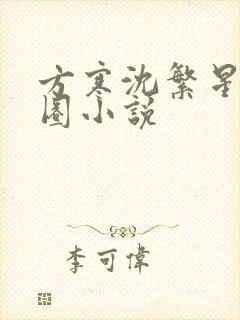 方寒沈繁星
圈小説
李可偉